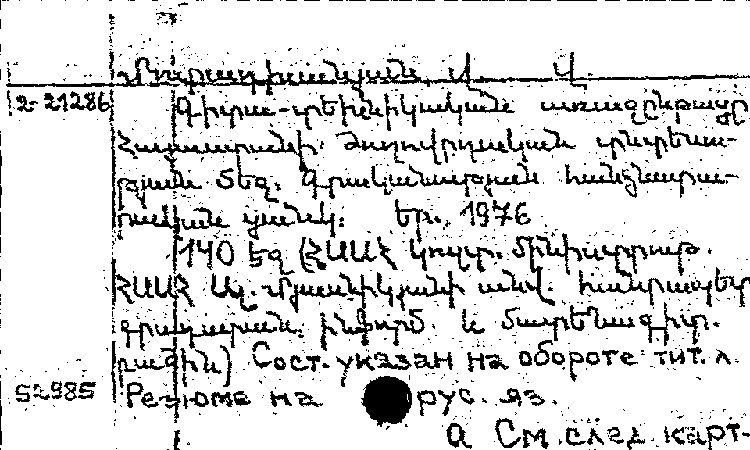 Մուրադխանյան, Ա. Վ.
2-21286 Գիտա-տեխնիկական առաջընթացը
Հայաստանի ժողովրդական տնտեսու-
թյան մեջ. Գրականության հանձնարա-
րական ցանկ. Եր., 1976
140 էջ (ՀՍՍՀ կուլտ. մինիստրութ.
ՀՍՍՀ Ալ. Մյասնիկյանի անվ. հանրապետ
գրադարան. ինֆորմ. և մատենագիտ.
բաժին) Сост. указан на обороте тит. л.
52985 Резюме на рус. яз.
а См. след карт-